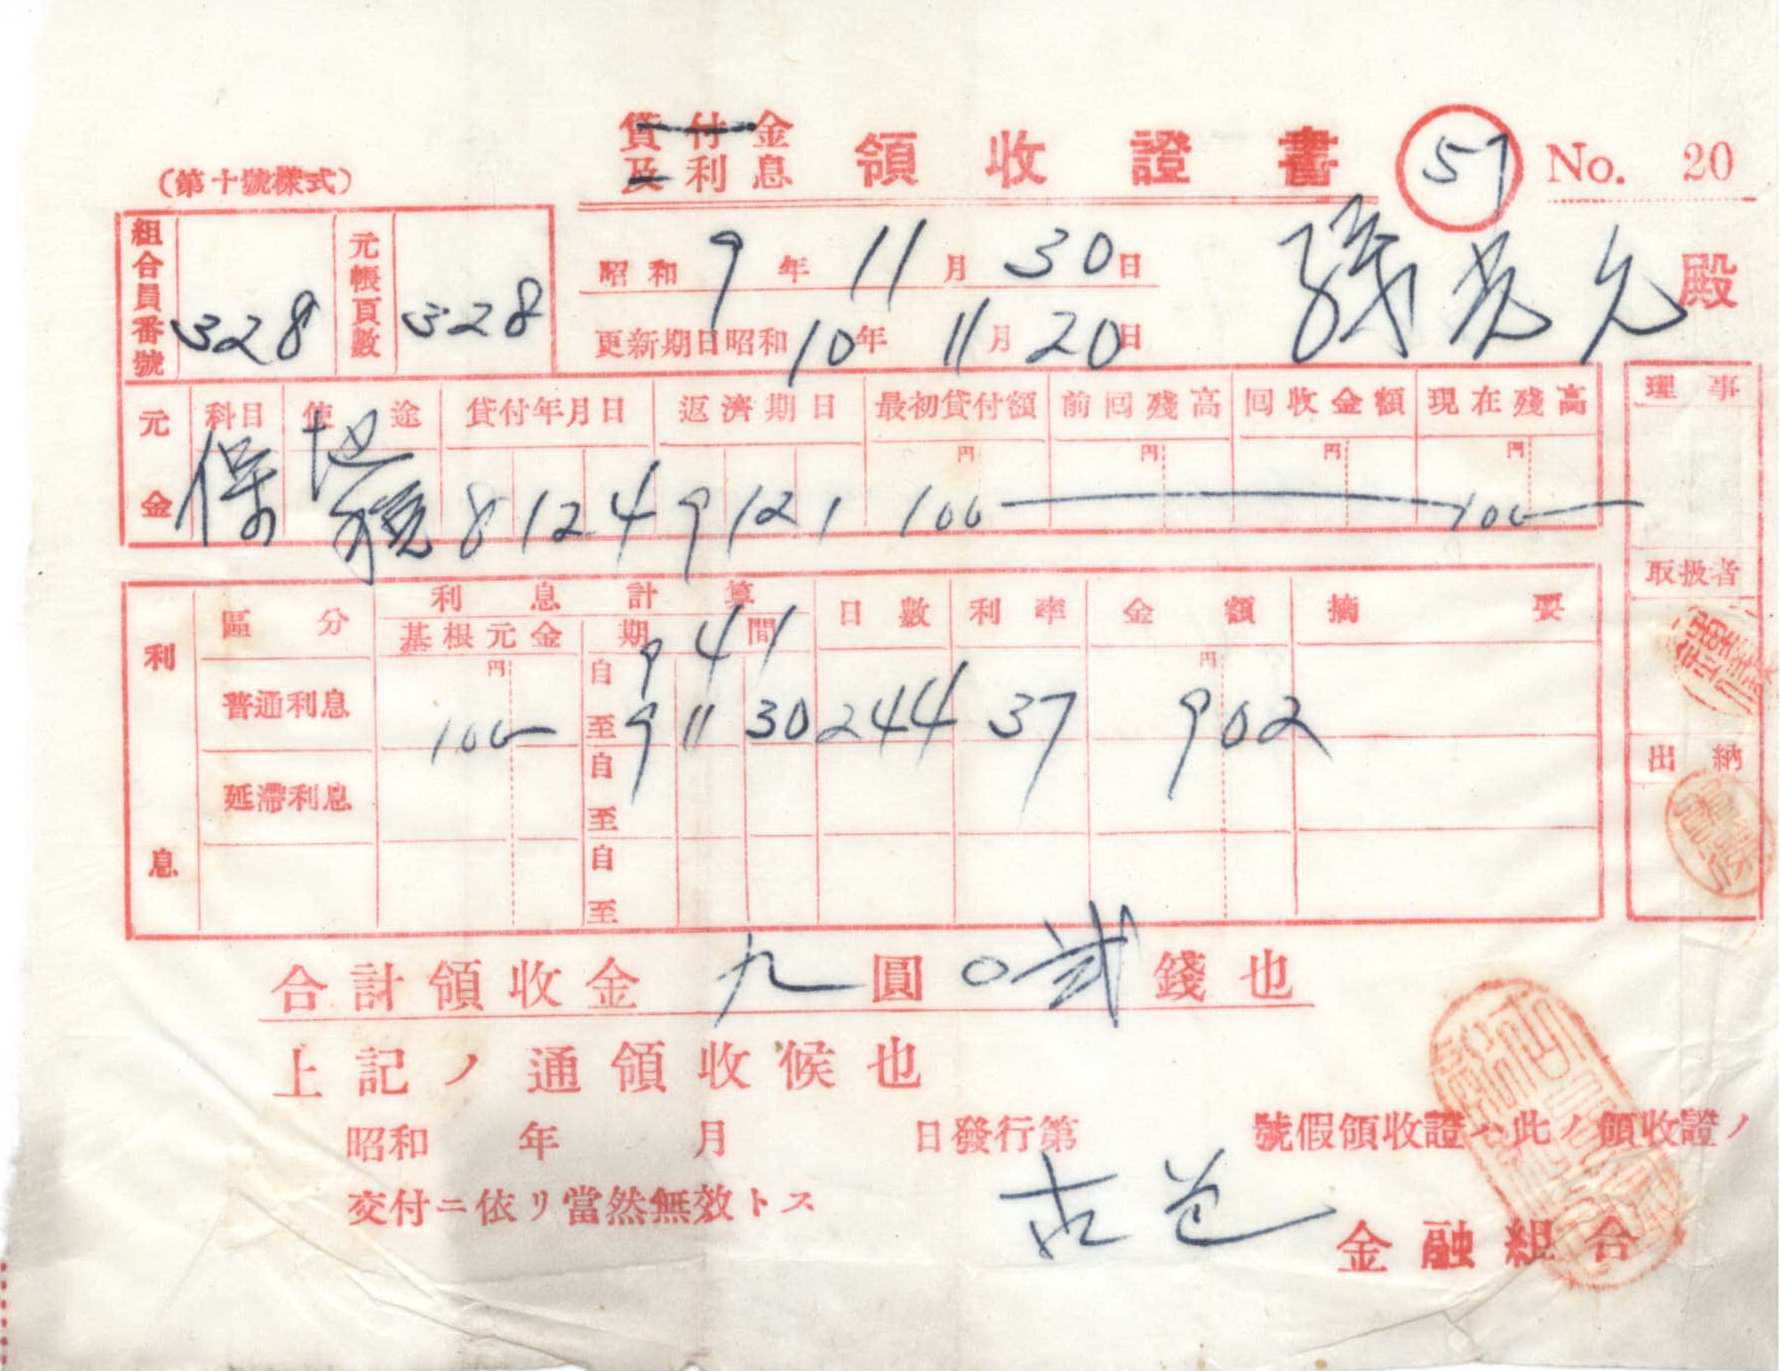 貸付金
及利息 領收證書 57 No. 20
(第十號樣式)
組合員番號 328 元帳頁數 328
昭和 9年 11月 30日
殿
更新期日昭和 10年 11月 20日
元金 科目 使途 貸付年月日 返濟期日 最初貸付額 前回殘高 回收金額 現在殘高
円 円 円 円
保 8 12 4 9 12 1 100 100
理事
取扱者
出納
利息 區分 利息計算 日數 利率 金額 摘要
基根元金 期間
普通利息 円 100 自 9 4 1 円
至 9 11 30 244 37 902
延滯利息 自
至
自
至
合計領收金 九圓〇貳錢也
上記ノ通領收候也
昭和 年 月 日發行第 號假領收證ハ此ノ領收證ノ
交付ニ依リ當然無效トス
金融組合